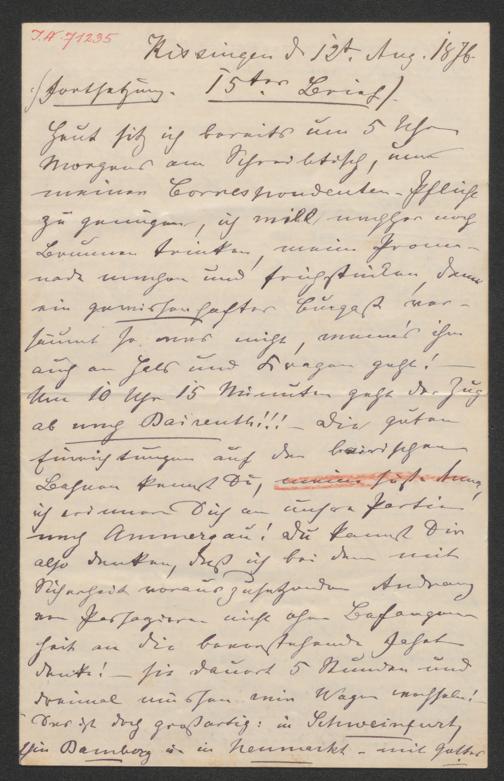 I.N. 71235
Kissingen d 12t. Aug. 1876
(Fortsetzung. 15ter Brief).
Heut sitz ich bereits um 5 Uhr
Morgens am Schreibtisch, um
meiner Correspondenten-Pflicht
zu genügen, ich will nachher noch
Brunnen trinken, meine Prome-
nade machen und frühstücken, denn
ein gewissenhafter Curgast ver-
säumt so was nicht, wenn's ihm
auch an Hals und Kragen geht! —
Um 10 Uhr 15 Minuten geht der Zug
ab nach Baireuth!!! — Die guten
Einrichtungen auf den bairischen
Bahnen kennst Du, meine
ich erinnere Dich an unsre Partie
nach Ammergau! Du kannst Dir
also denken, daß ich bei dem mit
Sicherheit vorauszusetzenden Andrang
von Passagieren nicht ohne Befangen-
heit an die bevorstehende Fahrt
denke! — sie dauert 5 Stunden und
dreimal müssen wir Wagen wechseln!
Das ist doch großartig: in Schweinfurt,
in Bamberg u in Neumarkt — mit Gottes